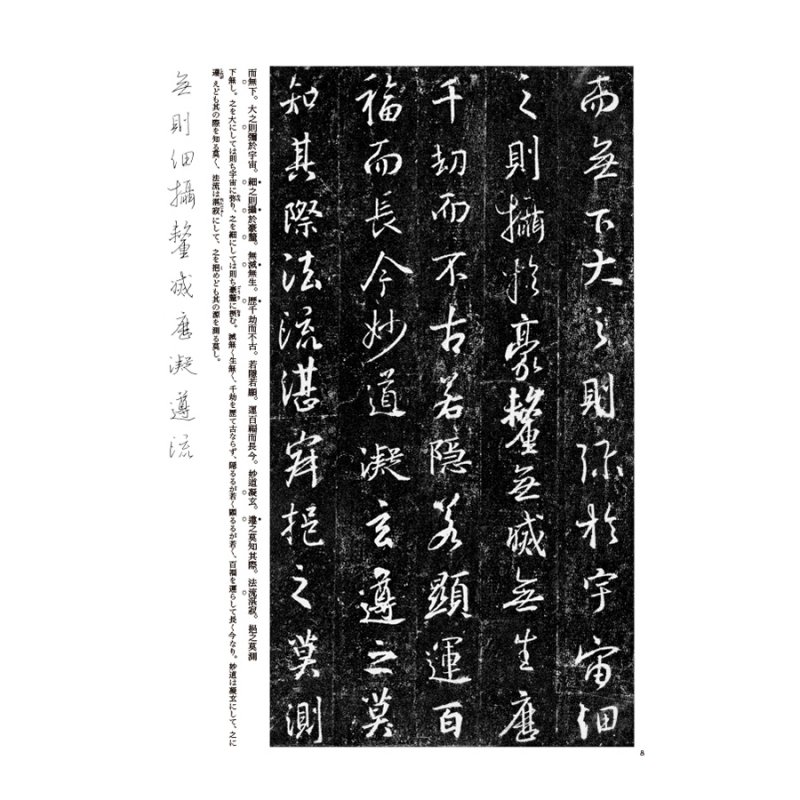 而無下大之則弥於宇宙細
之則攝於豪釐無滅無生歷
千劫而不古若隱若顯運百
福而長今妙道凝玄遵之莫
知其際法流湛寂挹之莫測
而無下。大之則彌於宇宙。細之則攝於豪釐。無滅無生。歷千劫而不古。若隱若顯。運百福而長今。妙道凝玄。遵之莫知其際。法流湛寂。挹之莫測
下無し。之を大にしては則ち宇宙に弥り、之を細にしては則ち豪釐に摂む。滅無く生無く、千劫を歴て古ならず、隠るるが若く顕るるが若く、百福を運らして長く今なり。妙道は凝玄にして、之に
遵えども其の際を知る莫く、法流は湛寂にして、之を挹めども其の源を測る莫し。
無則細攝釐滅歷凝遵流
8